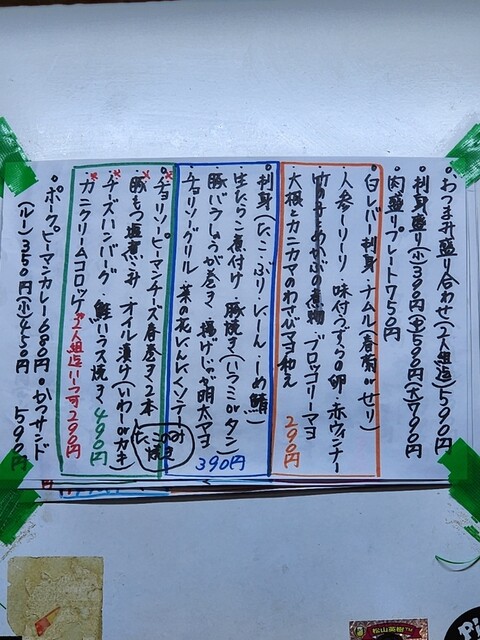 ・おつまみ盛り合わせ(2人組迄)590円
・刺身盛り(小)390円(中)590円(大)790円
・肉盛りプレート750円
・白レバー刺身 ナムル(春菊orせり)
・人参しりしり 味付うずらの卵・赤ウィンナー
・竹の子とわかめの煮物・ブロッコリーマヨ
・大根とカニカマのわさびマヨ和え 290円
・刺身(たこ・ぶり・にしん・しめ鯖)
・生たらこ煮付け・豚焼き(ハラミorタン)
・豚バラしょうが巻き・揚げじゃが明太マヨ
・チョリソーグリル・菜の花にんにくソテー 390円
・チョリソーピーマンチーズ春巻き2本
・豚もつ塩煮込み・オイル漬け(いわしorカキ)
たこつみ焼き
・チーズハンバーグ 鮭ハラス焼き 490円
・カニクリームコロッケ 2人組迄1つ 290円
・ポークピーマンカレー680円・かつサンド 590円
(ルー)350円(小)450円
松山英樹